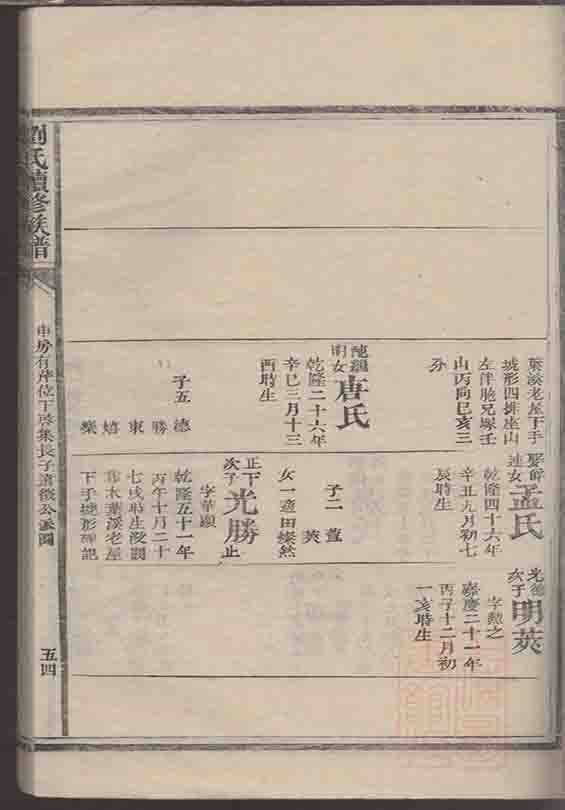 葉溪老屋下手
城形四排座山
左伴胞兄塚壬
山丙向巳亥三
分
明女
唐氏
乾隆二十六年
辛巳三月十三
酉時生
子五
德
勝
東
嬉
樂
娶
連女
孟氏
乾隆四十六年
辛丑九月初七
辰時生
子二
萱
莢
女一適田燦然
正下
次子
光勝
止
字華顯
乾隆五十一年
丙午十月二十
七戌時生沒闕
葬木葉溪老屋
下手城形碑記
光德
次子
明莢
字勲之
嘉慶二十一年
丙子十二月初
一亥時生
劉氏續修族譜
申房有芹位下啓集長子清徵公派圖
五四